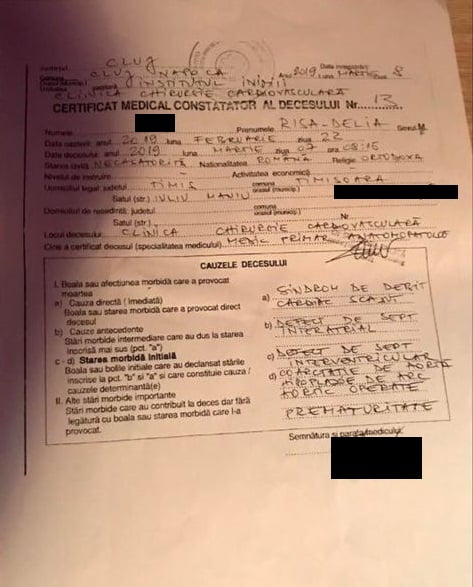 Județul CLUJ
CLUJ NAPOCA
Anul 2019 luna MARTIE 8
INSTITUTUL INIMII
CLINICA CHIRURGIE CARDIOVASCULARĂ
CERTIFICAT MEDICAL CONSTATATOR AL DECESULUI Nr. 13
Numele Prenumele RISA-DELIA Sexul
Data nașterii: anul 2019 luna FEBRUARIE ziua 22
Data decesului: anul 2019 luna MARTIE ziua 07 ora 08:15
Starea civilă NECASATORITĂ Naționalitatea ROMÂNĂ Religie ORTODOXĂ
Nivelul de instruire Activitatea economică
Domiciliul legal: județul TIMIS comuna orașul (municip.) TIMISOARA
Satul (str.) IULIU MANIU
Domiciliul de reședință: județul comuna orașul (municip.)
Satul (str.) Nr.
Locul decesului CLINICA CHIRURGIE CARDIOVASCULARĂ
Cine a certificat decesul (specialitatea medicului) MEDIC PRIMAR ANATOMOPATOLOG
CAUZELE DECESULUI
I. Boala sau afecțiunea morbidă care a provocat
moartea
a) Cauza directă (imediată)
Boala sau starea morbidă care a provocat direct
decesul
a) SINDROM DE DEBIT
CARDIAC SCAZUT
b) Cauze antecedente
Stări morbide intermediare care au dus la starea
înscrisă mai sus (pct. "a")
b) DEFECT DE SEPT
INTERATRIAL
c - d) Starea morbidă inițială
Boala sau bolile inițiale care au declanșat stările
înscrise la pct. "b" și "a" și care constituie cauza /
cauzele determinantă(e)
c) DEFECT DE SEPT
INTERVENTRICULAR
d) COARCTATIE DE AORTĂ
HIPOPLAZIE DE ARC
AORTIC OPERATE
II. Alte stări morbide importante
Stări morbide care au contribuit la deces dar fără
legătură cu boala sau starea morbidă care l-a
provocat.
PREMATURITATE
Semnătura și parafa medicului: